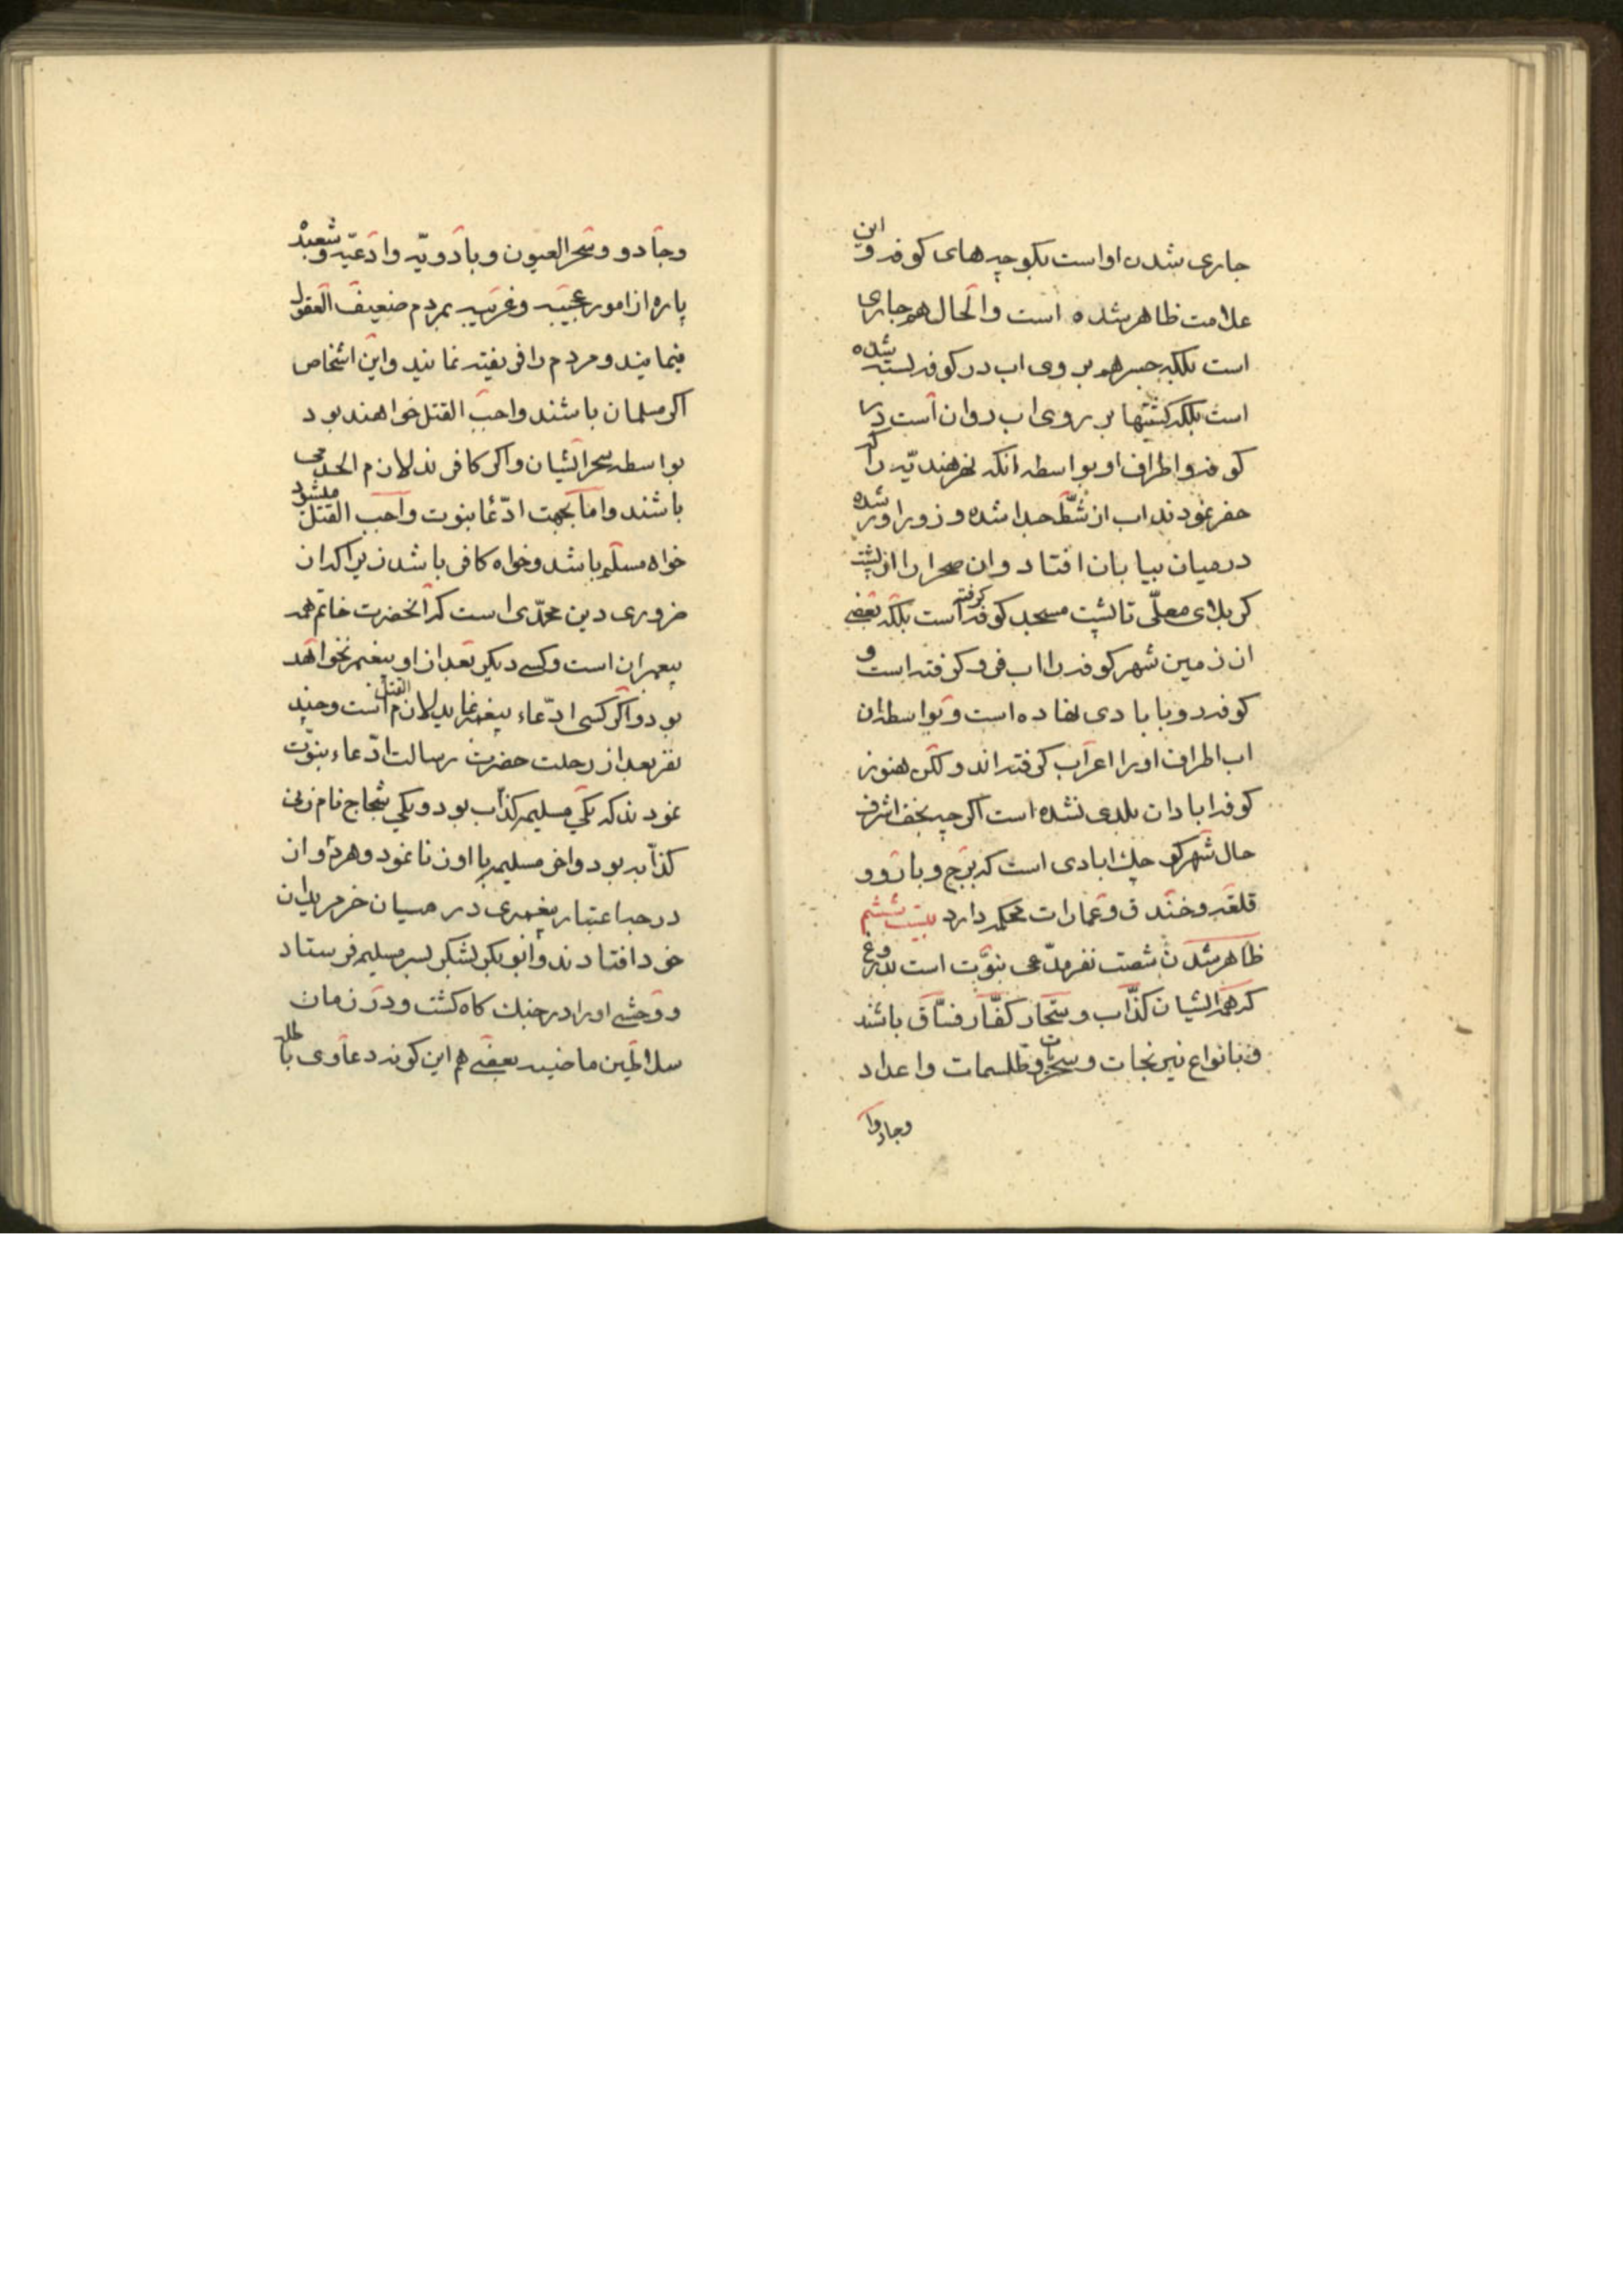 جاری شدن او است بکوچه‌های کوفه و این
علامت ظاهر شده است والحال هم جاری
است بلکه جسر هم بر وی اب در کوفه بسته شده
است بلکه کشتیها بر روی اب روان است در
کوفه و اطراف او بواسطه انکه نهر هندیّه را که
حفر نمودند اب از شطّ جدا شده و زورآور شده
در میان بیابان افتاد و ان صحرا را از پشت
کربلای معلّی تا پشت مسجد کوفه کرفته است بلکه بعضی
از زمین شهر کوفه را اب فرو کرفته است و
کوفه رو بابادی نهاده است و بواسطه ان
اب اطراف او را اعراب کرفته‌اند ولکن هنوز
کوفه ابادان بلدی نشده است اکرچه نجف اشرف
حال شهر کوچک ابادی است که برج و بارو و
قلعه و خندق و عمارات محکمه دارد بیست ششم
ظاهر شدن شصت نفر مدّعی نبوّت است بدروغ
که همه ایشان کذّاب و سحّار کفّار فسّاق باشند
و بانواع نیرنجات و سحر و طلسمات و اعداد
وجادو
وجادو و سحر العیون و بادویّه و ادعیّه و شعبده
پاره از امور عجیبه و غریبه بمردم ضعیف العقول
مینمایند و مردم را فریفته نمایند و این اشخاص
اکر مسلمان باشند واجب القتل خواهند بود
بواسطه سحر ایشان و اکر کافرند لازم الحد می
باشند و اما بجهت ادّعا نبوت واجب القتل میشود
خواه مسلم باشد و خواه کافر باشد زیرا که ان
ضروری دین محمّدی است که آنحضرت خاتم همه
پیغمبران است و کسی دیکر بعد از او پیغمبر نخواهد
بود و اکر کسی ادّعاء پیغمبر نماید لازم القتل است و چند
نفر بعد از رحلت حضرت رسالت ادّعاء نبوّت
نمودند که یکی مسلیمه کذّاب بود و یکی شجاج نام زنی
کذّابه بود و اخر مسلیمه با او زنا نمود و هر دو از
درجه اعتبار پیغمبری در میان خر مریدان
خود افتادند و ابوبکر لشکر بسر مسلیمه فرستاد
و وحشی او را در جنک کاه کشت و در زمان
سلاطین ماضیه بعضی هم این کونه دعاوی باطله